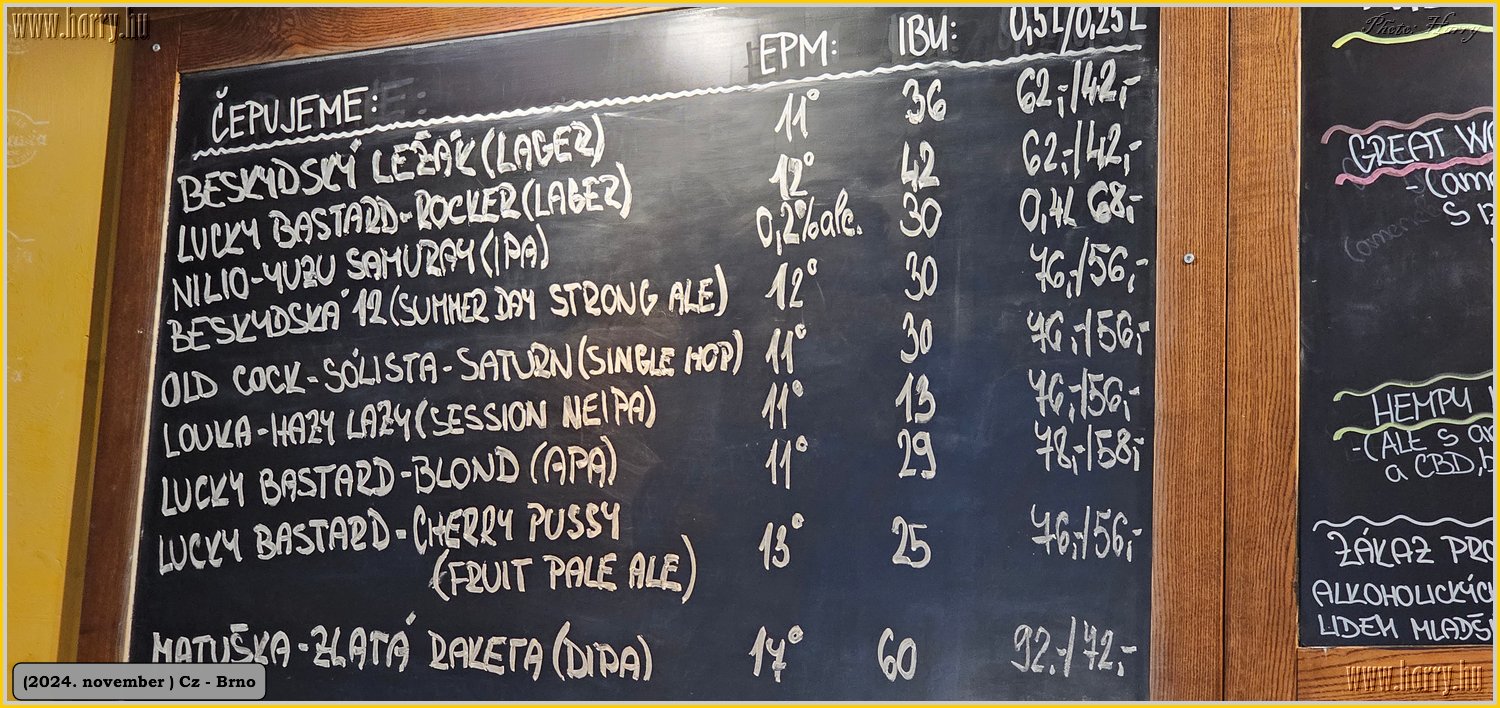 www.harry.hu
Photo: Harry
ČEPUJEME: EPM: IBU: 0,5L/0,25L
BESKYDSKÝ LEŽÁK (LAGER) 11° 36 62,-/42,-
LUCKY BASTARD-ROCKER (LAGER) 12° 42 62,-/42,-
NILIO-YUZU SAMURAY (IPA) 0,2% alc. 30 0,4L 68,-
BESKYDSKÁ 12 (SUMMER DAY STRONG ALE) 12° 30 76,-/56,-
OLD COCK-SÓLISTA-SATURN (SINGLE HOP) 11° 30 76,-/56,-
LOUKA-HAZY LAZY (SESSION NEIPA) 11° 13 76,-/56,-
LUCKY BASTARD-BLOND (APA) 11° 29 78,-/58,-
LUCKY BASTARD-CHERRY PUSSY 13° 25 76,-/56,-
(FRUIT PALE ALE)
MATUŠKA-ZLATÁ RAKETA (DIPA) 17° 60 92,-/72,-
GREAT
HEMPU
-(ALE S
a CBD,
ZÁKAZ
ALKOHOLICKÝCH
LIDEM
(2024. november ) Cz - Brno
www.harry.hu